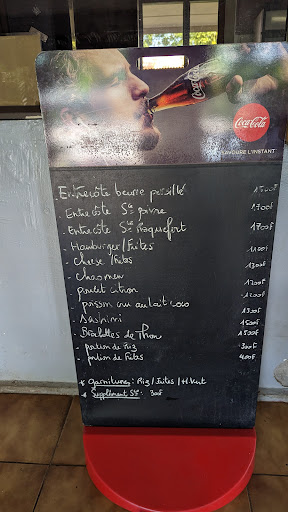 Coca-Cola
Coca-Cola
SAVOURE L'INSTANT
- Entrecôte beurre persillé 1500F
- Entrecôte Sce poivre 1700F
- Entrecôte Sce Roquefort 1700F
- Hamburger/Frites 1100F
- Cheese/Frites 1300F
- Chaomen 1200F
- poulet citron 1200F
- poisson cru au lait coco 1300F
- Sashimi 1500F
- Brochettes de Thon 1500F
- portion de Riz 300F
- portion de Frites 400F
* Garnitures: Riz/Frites/H.Vert
* Supplément Sce: 300F